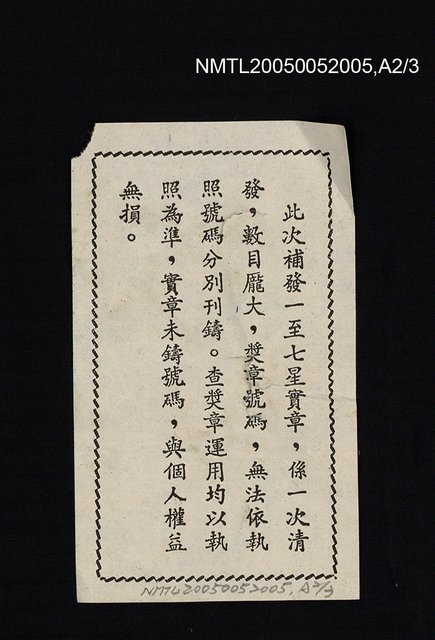 NMTL20050052005,A2/3
此次補發一至七星實章，係一次清
發，數目龐大，獎章號碼，無法依執
照號碼分別刊鑄。查獎章運用均以執
照為準，實章未鑄號碼，與個人權益
無損。
NMTL20050052005, A2/3